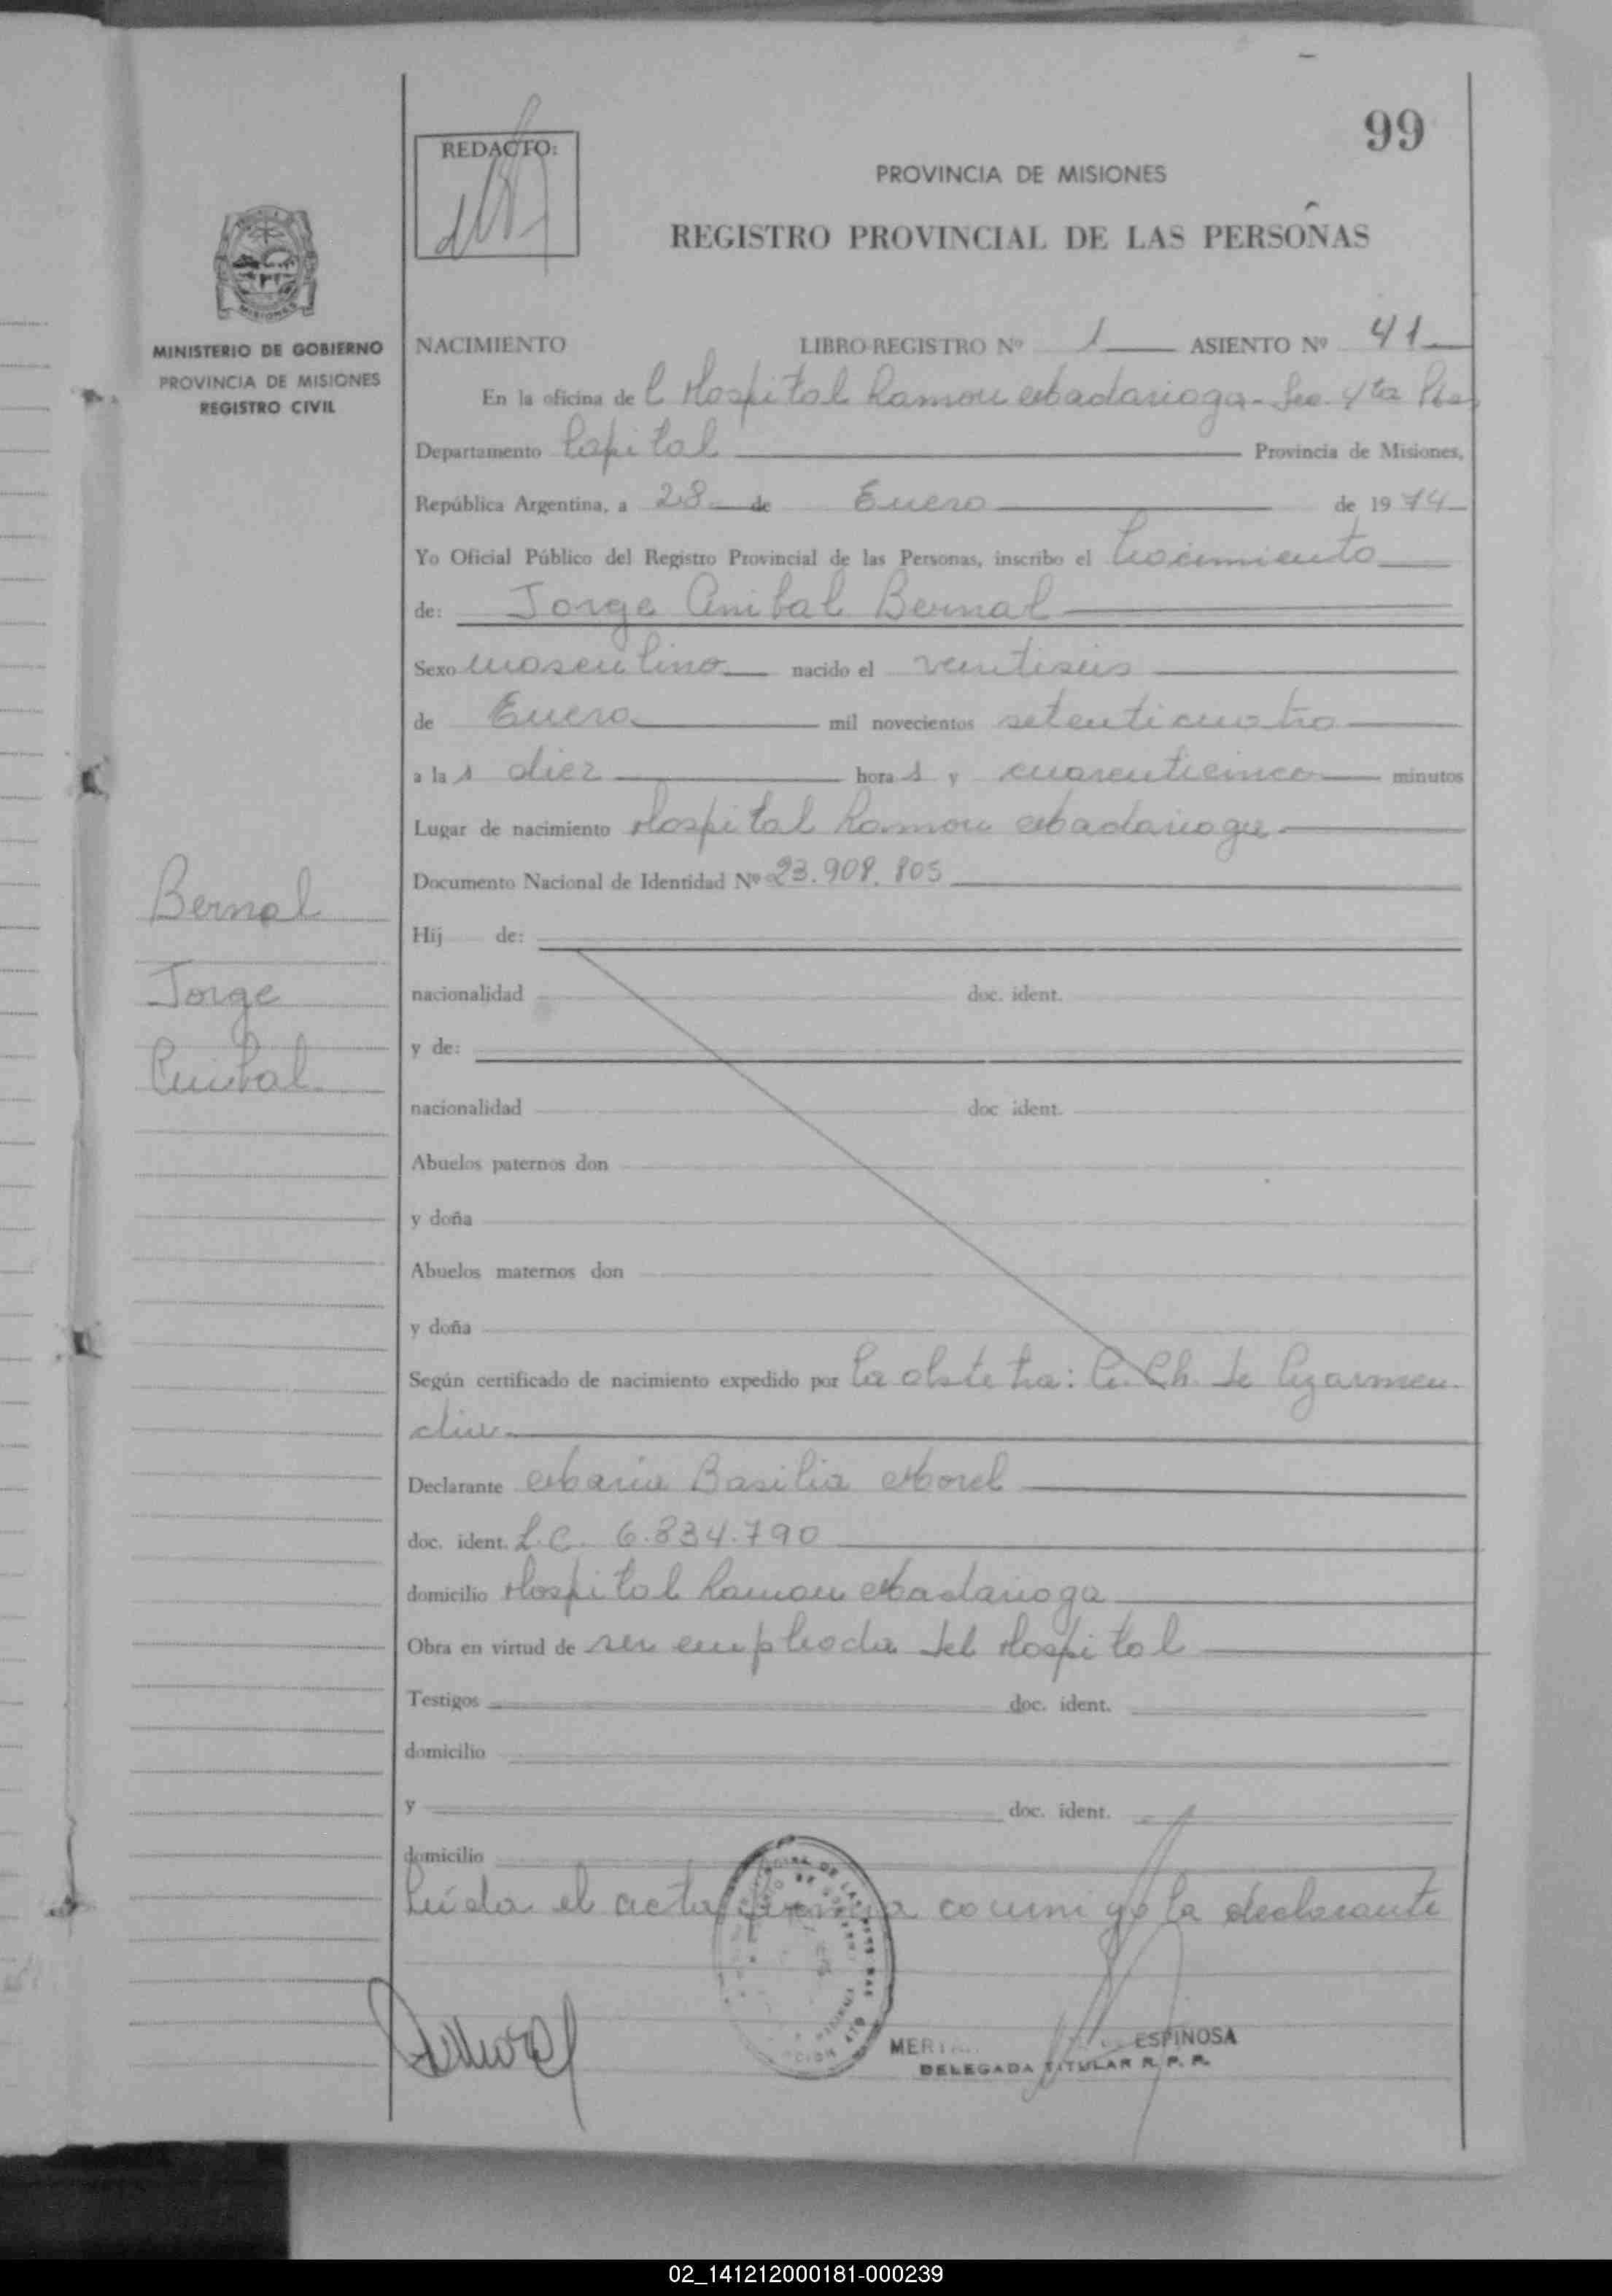 99
REDACTO:
PROVINCIA DE MISIONES
REGISTRO PROVINCIAL DE LAS PERSONAS
MISIONES
MINISTERIO DE GOBIERNO
PROVINCIA DE MISIONES
REGISTRO CIVIL
NACIMIENTO LIBRO-REGISTRO Nº 1 ASIENTO Nº 41
En la oficina de l Hospital Ramon Madariaga - Sec. 4ta
Departamento Capital Provincia de Misiones,
República Argentina, a 28 de Enero de 1974
Yo Oficial Público del Registro Provincial de las Personas, inscribo el Nacimiento
de: Jorge Anibal Bernal
Sexo masculino nacido el veintiseis
de Enero mil novecientos setenticuatro
a las diez horas y cuarenticinco minutos
Lugar de nacimiento Hospital Ramon Madariaga
Documento Nacional de Identidad Nº 23.908.805
Bernal
Jorge
Anibal
Hij de:
nacionalidad doc. ident.
y de:
nacionalidad doc ident.
Abuelos paternos don
y doña
Abuelos maternos don
y doña
Según certificado de nacimiento expedido por la obstetra: C. Ch. de Egarmen
dia
Declarante Maria Basilia Morel
doc. ident. L.C. 6.834.790
domicilio Hospital Ramon Madariaga
Obra en virtud de ser empleada del Hospital
Testigos doc. ident.
domicilio
y doc. ident.
domicilio
Leída el acta firma conmigo la declarante
ESPINOSA
DELEGADA TITULAR R. P. P.
02_141212000181-000239